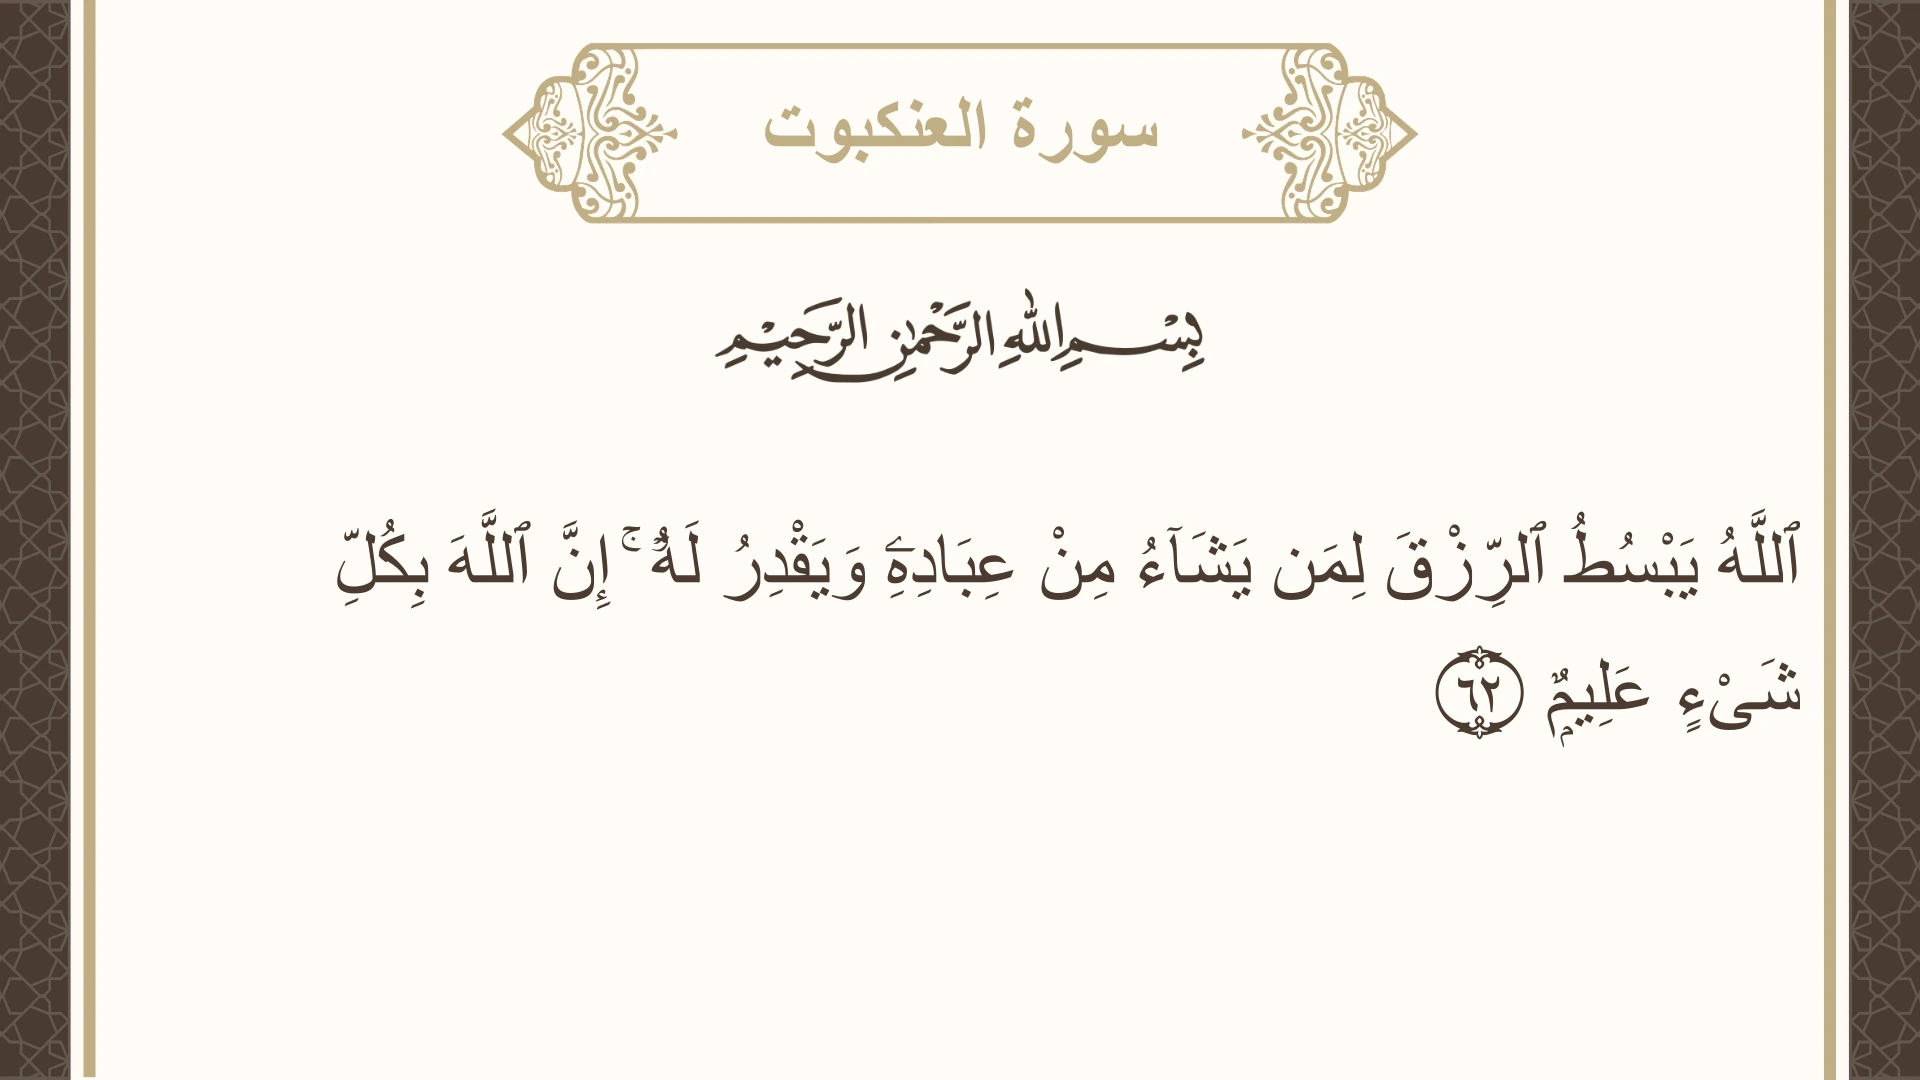 سورة العنكبوت
بِسْمِ اللهِ الرَّحْمٰنِ الرَّحِيْمِ
ٱللَّهُ يَبْسُطُ ٱلرِّزْقَ لِمَن يَشَآءُ مِنْ عِبَادِهِۦ وَيَقْدِرُ لَهُۥٓ ۚ إِنَّ ٱللَّهَ بِكُلِّ
شَىْءٍ عَلِيمٌۭ ۝٦٢